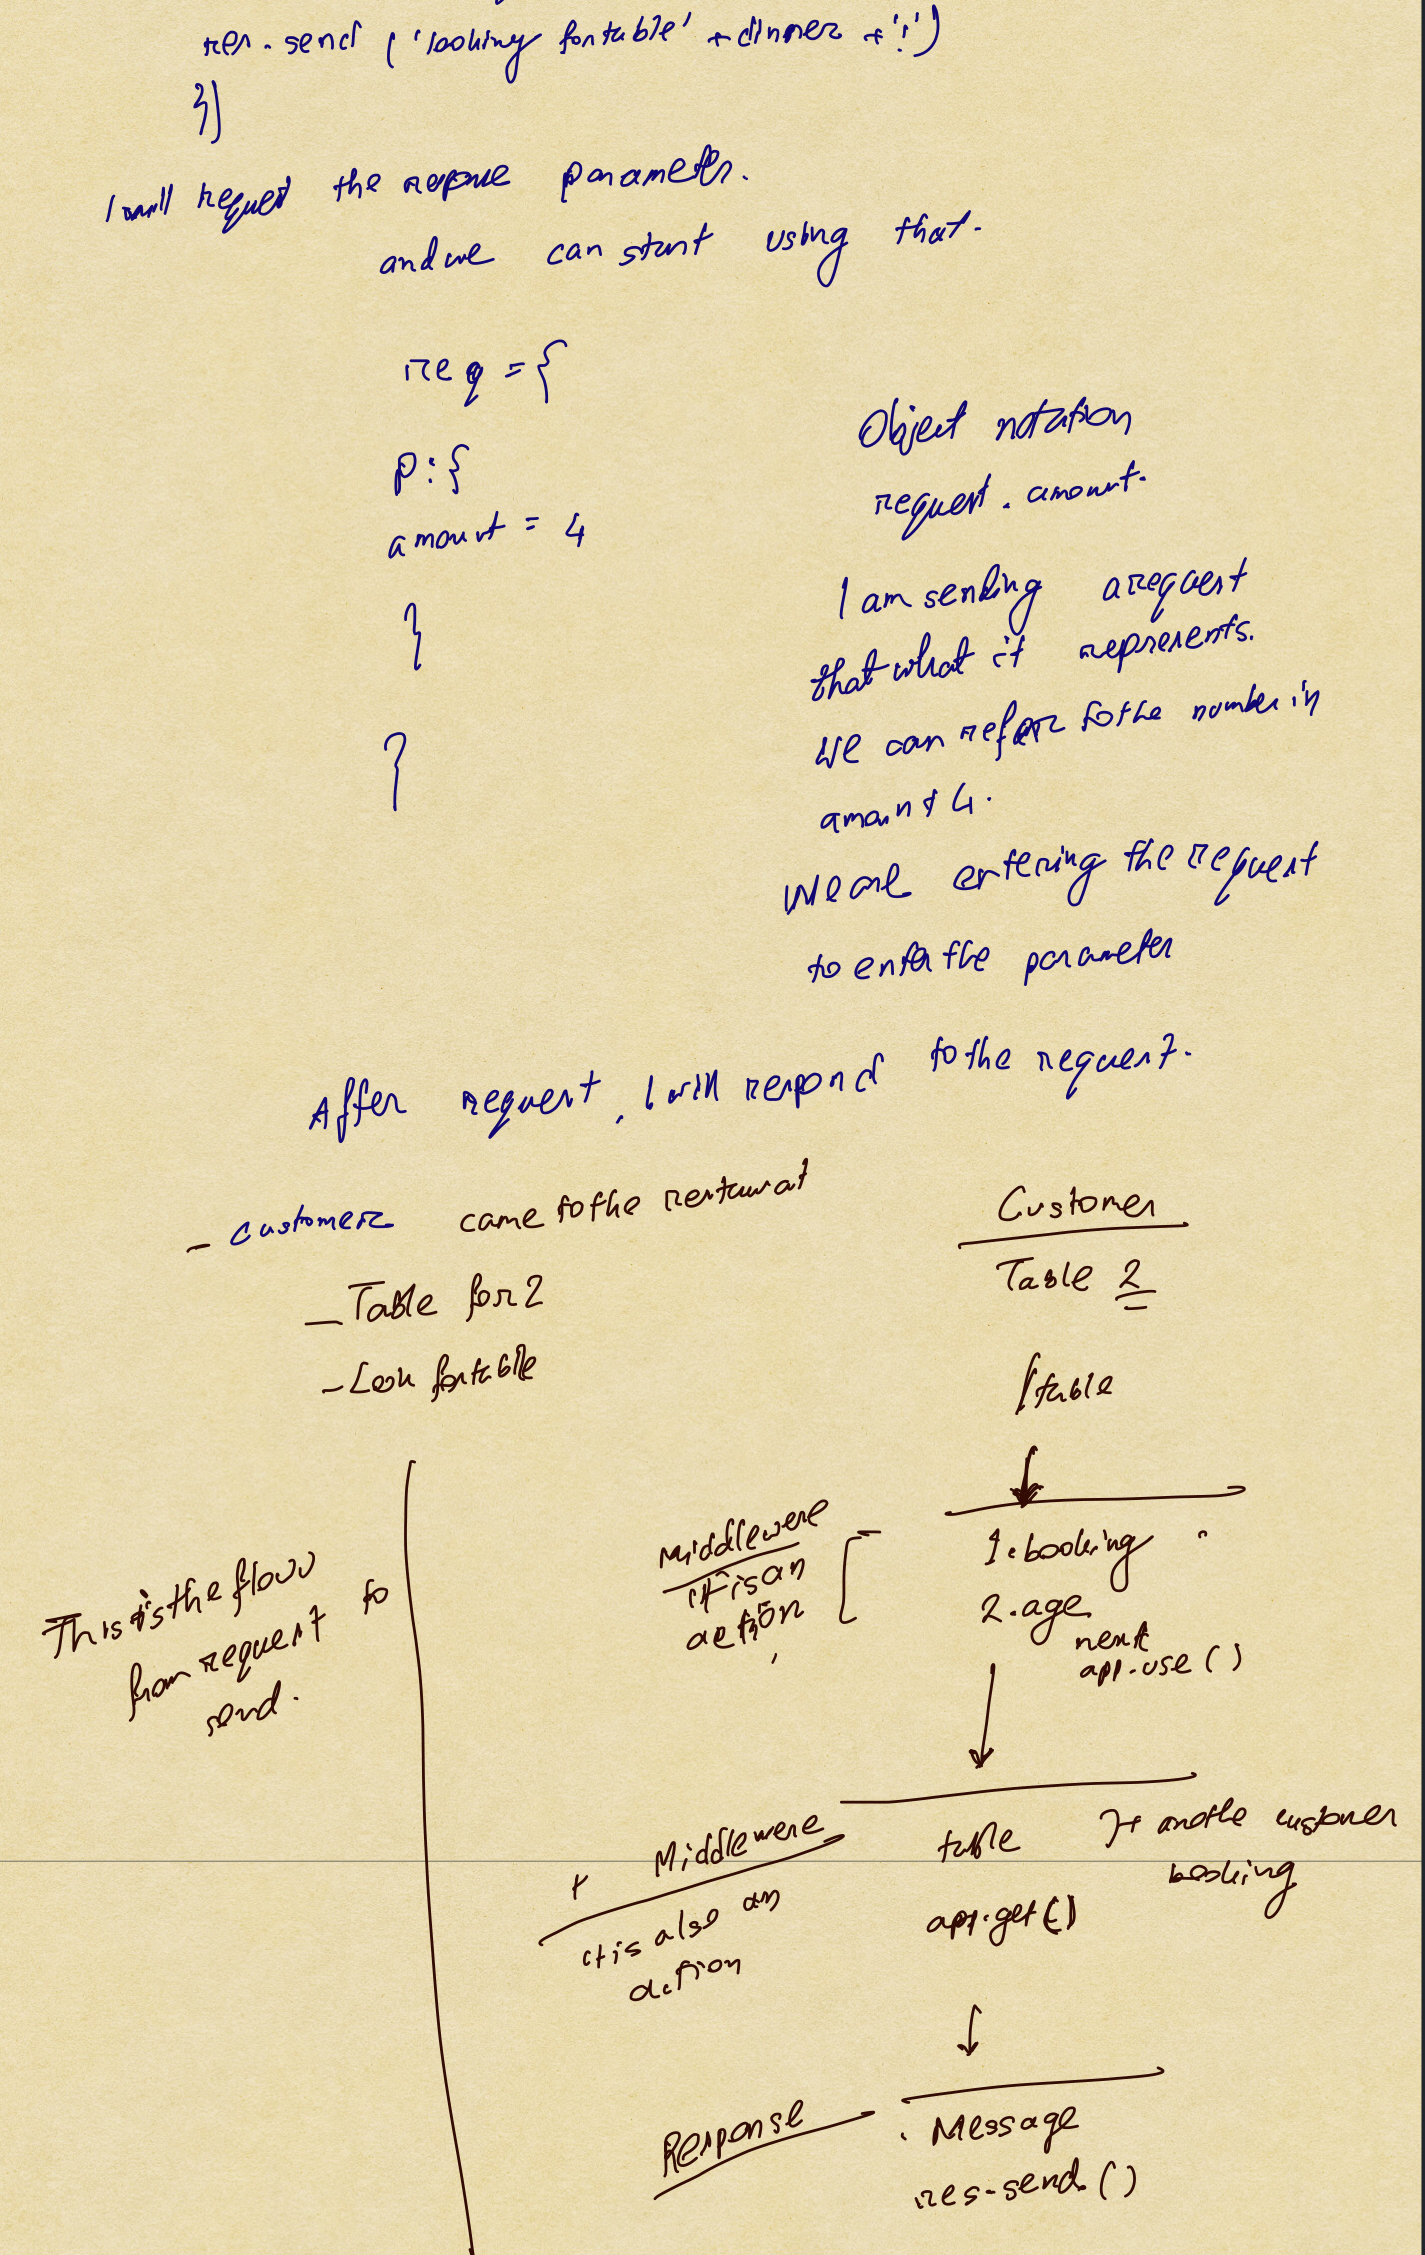 res.send ('looking for table' + dinner + '!')
})
I will request the reponse parameter.
and we can start using that.
req = {
p : {
amount = 4
}
}
Object notation
request . amount.
I am sending a request
that what it represents.
We can refer to the number in
amount 4.
We are entering the request
to enter the parameter
After request, I will respond to the request.
- customer came to the restaurat
- Table for 2
- Look for table
Customer
Table 2
/table
Middlewere
it is an
action
1. booking
2. age
next
app.use ( )
This is the flow
from request to
send.
+ Middlewere
it is also an
action
table
app.get ( )
customer
booking
Response
. Message
res.send ( )